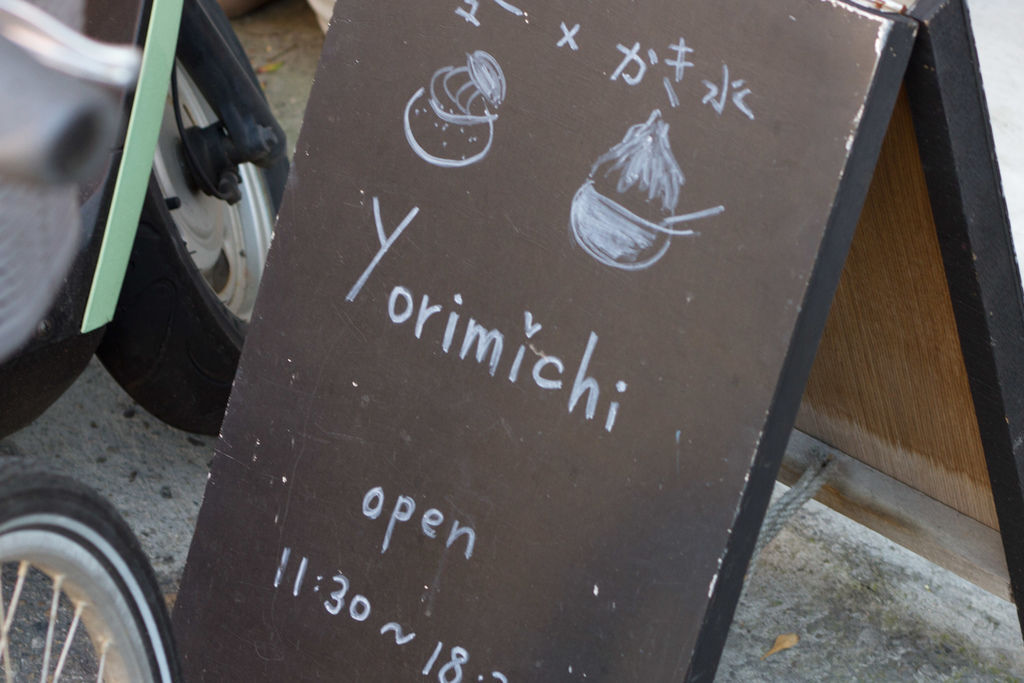 × かき氷
Yorimichi
open
11:30~18: